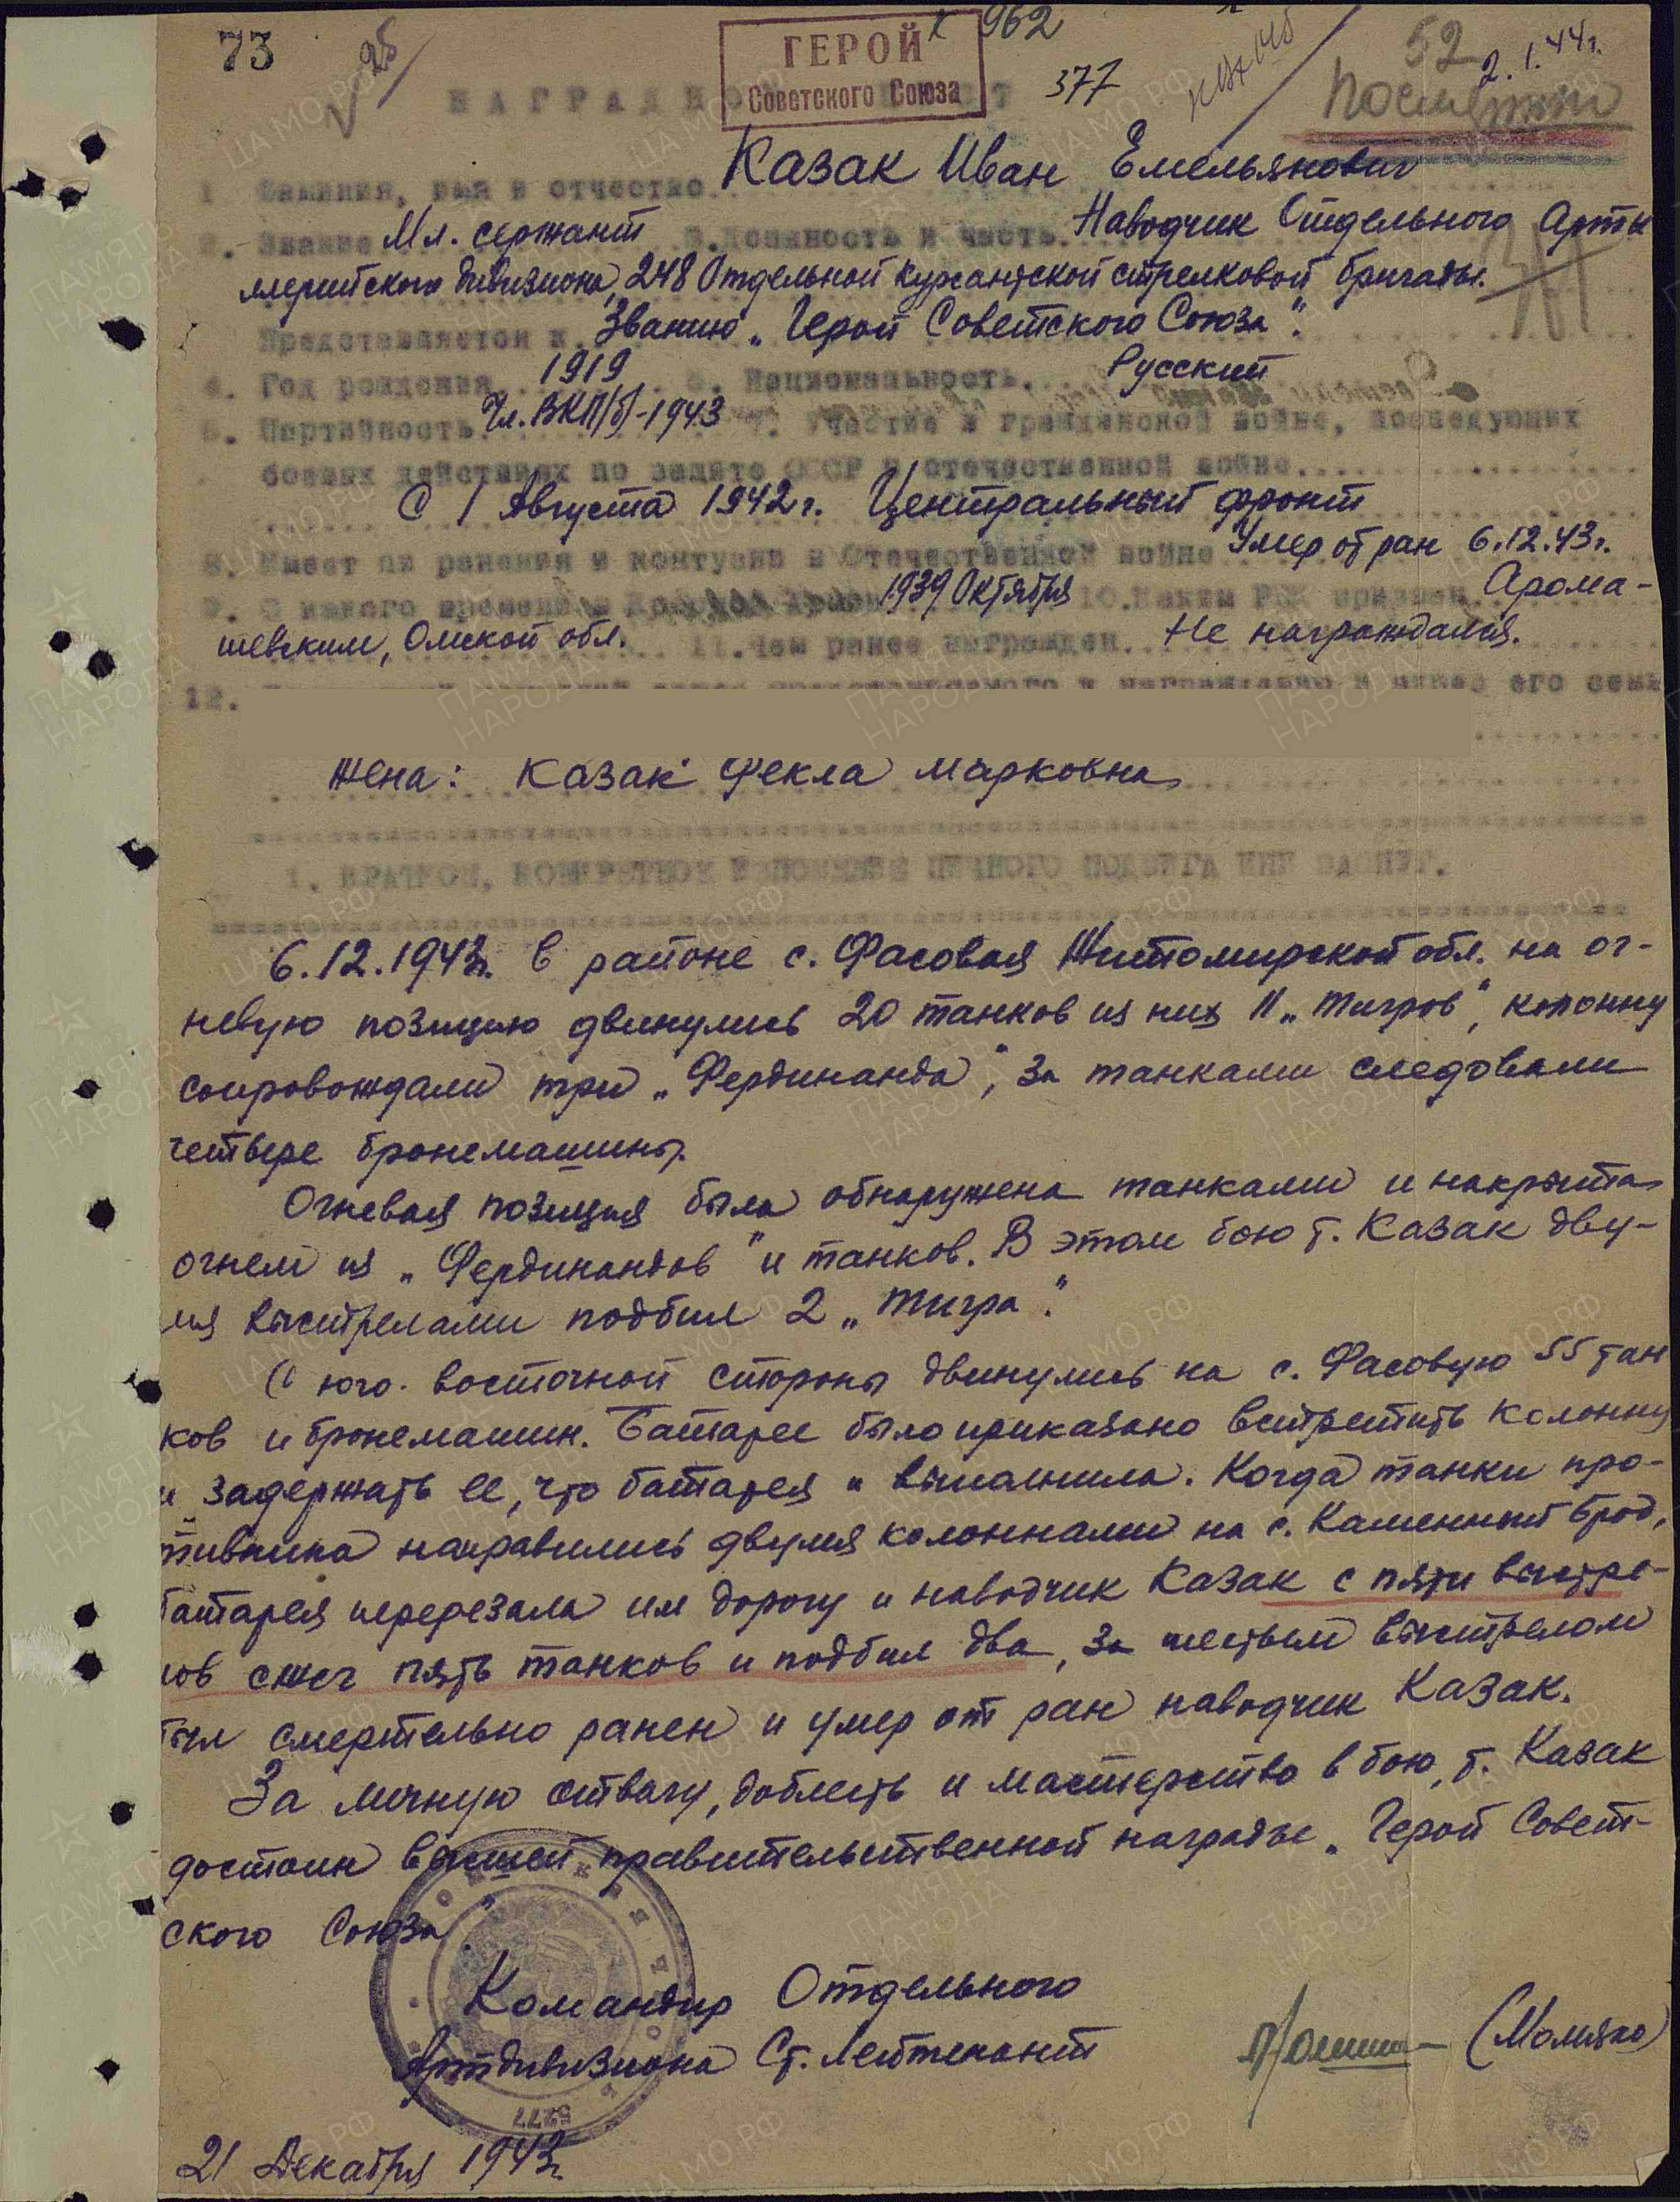 73
ГЕРОЙ
Советского Союза
962
377
52
2.1.44г.
Посмертно
НАГРАДНОЙ ЛИСТ
1. Фамилия, имя и отчество Казак Иван Емельянович
2. Звание Мл. сержант 3. Должность и часть Наводчик Отдельного Арти
ллерийского дивизиона, 248 Отдельной курсантской стрелковой бригады.
Представляется к Званию „Герой Советского Союза“.
4. Год рождения 1919 5. Национальность Русский
6. Партийность Чл. ВКП/б/-1943 7. Участие в гражданской войне, последующих
боевых действиях по защите СССР и отечественной войне
С 1 Августа 1942г. Центральный фронт
8. Имеет ли ранения и контузии в Отечественной войне Умер от ран 6.12.43г.
9. С какого времени в Красной Армии 1939 Октября 10. Каким РВК призван Арома-
шевским, Омской обл. 11. Чем ранее награжден Не награждался.
12.
Жена: Казак Фекла Марковна
1. КРАТКОЕ, КОНКРЕТНОЕ ИЗЛОЖЕНИЕ ЛИЧНОГО ПОДВИГА ИЛИ ЗАСЛУГ.
6.12.1943г. в районе с. Фасовая Житомирской обл. на ог-
невую позицию двинулись 20 танков из них 11 „Тигров“, колонну
сопровождали три „Фердинанда“, за танками следовали
четвере бронемашины.
Огневая позиция была обнаружена танками и накрыта
огнем из „Фердинандов“ и танков. В этом бою т. Казак дву-
мя выстрелами подбил 2 „Тигра“.
С юго-восточной стороны двинулись на с. Фасовую 55 тан
ков и бронемашин. Батарее было приказано встретить колонну
и задержать ее, что батарея и выполнила. Когда танки про-
тивника направились двумя колоннами на с. Каменный Брод,
батарея перерезала им дорогу и наводчик Казак с пяти выстре-
лов сжег пять танков и подбил два, за шестым выстрелом
был смертельно ранен и умер от ран наводчик Казак.
За личную отвагу, доблесть и мастерство в бою, т. Казак
достоин высшей правительственной награды „Герой Совет-
ского Союза“.
Командир Отдельного
Артдивизиона Ст. Лейтенант (Моляко)
5277
21 Декабря 1943г